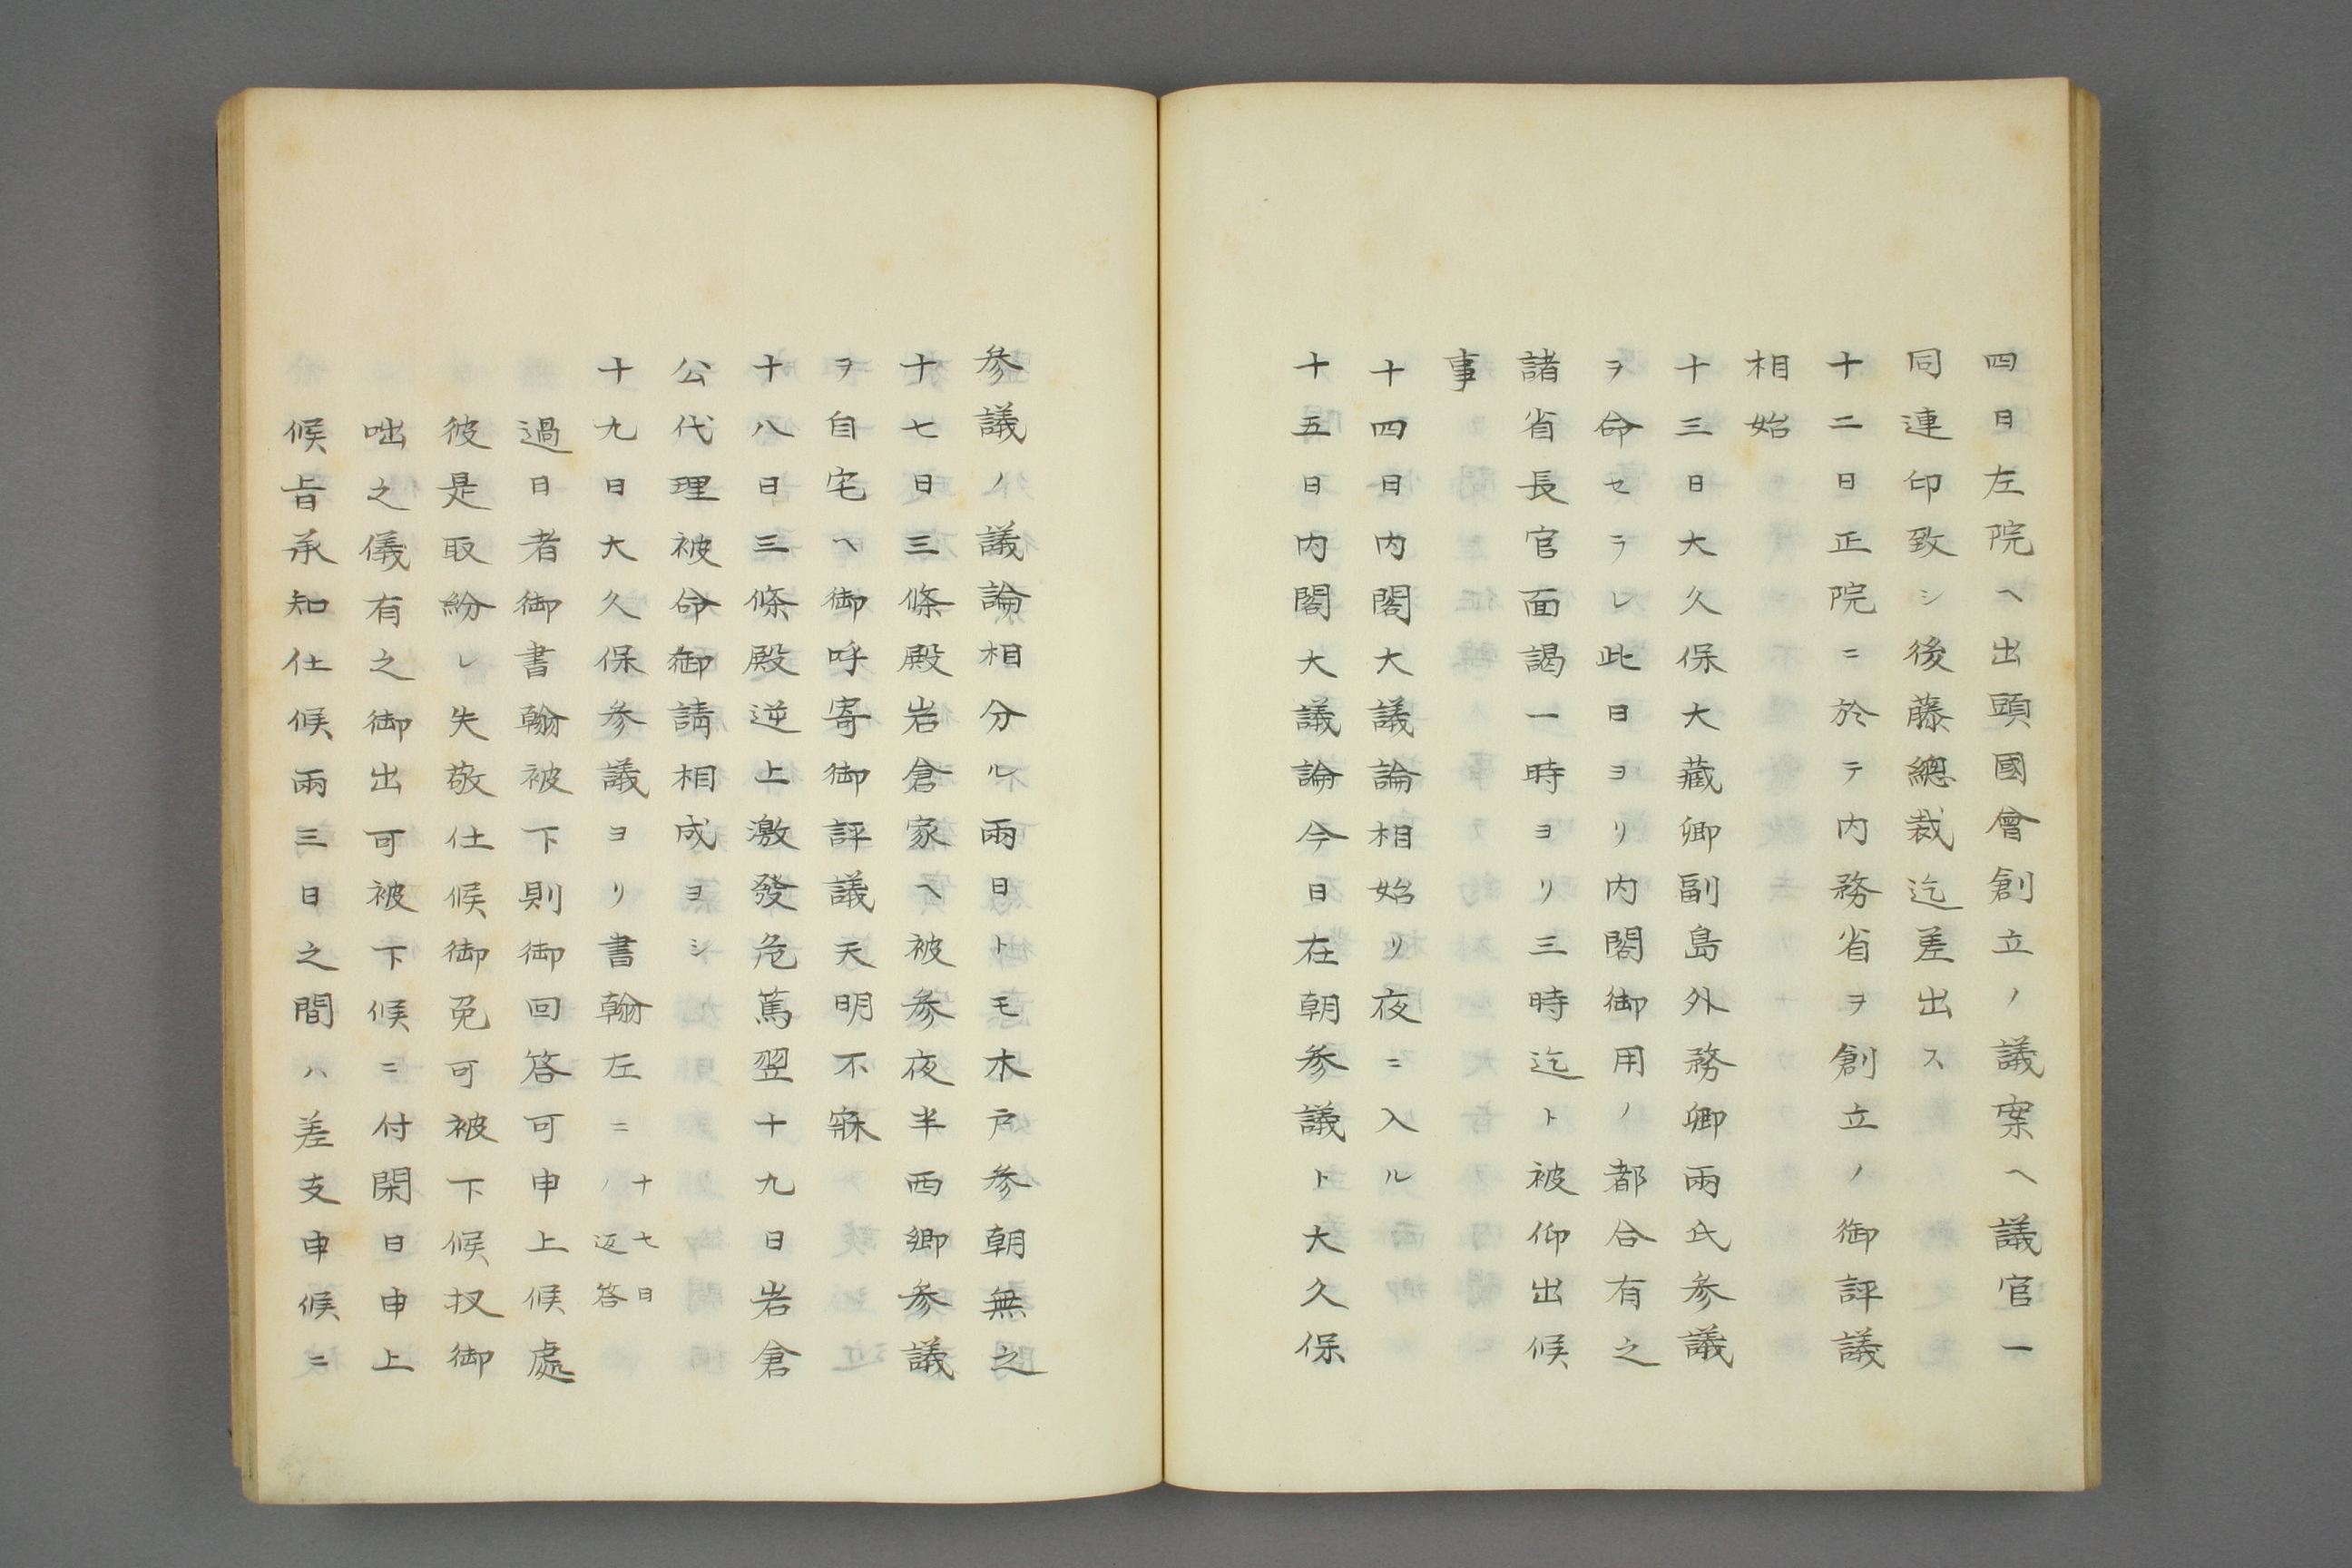 四日左院ヘ出頭國會創立ノ議案ヘ議官一
同連印致シ後藤總裁迄差出ス
十二日正院ニ於テ内務省ヲ創立ノ御評議
相始
十三日大久保大藏卿副島外務卿兩氏參議
ヲ命セラレ此日ヨリ内閣御用ノ都合有之
諸省長官面謁一時ヨリ三時迄ト被仰出候
事
十四日内閣大議論相始リ夜ニ入ル
十五日内閣大議論今日在朝參議ト大久保
參議ノ議論相分ル兩日トモ木戸參朝無之
十七日三條殿岩倉家ヘ被參夜半西郷參議
ヲ自宅ヘ御呼寄御評議天明不寐
十八日三條殿逆上激發危篤翌十九日岩倉
公代理被命御請相成ヨシ
十九日大久保參議ヨリ書翰左ニ
十七日
ノ返答
過日者御書翰被下則御回答可申上候處
彼是取紛レ失敬仕候御免可被下候扨御
咄之儀有之御出可被下候ニ付閑日申上
候旨承知仕候兩三日之間ハ差支申候ニ